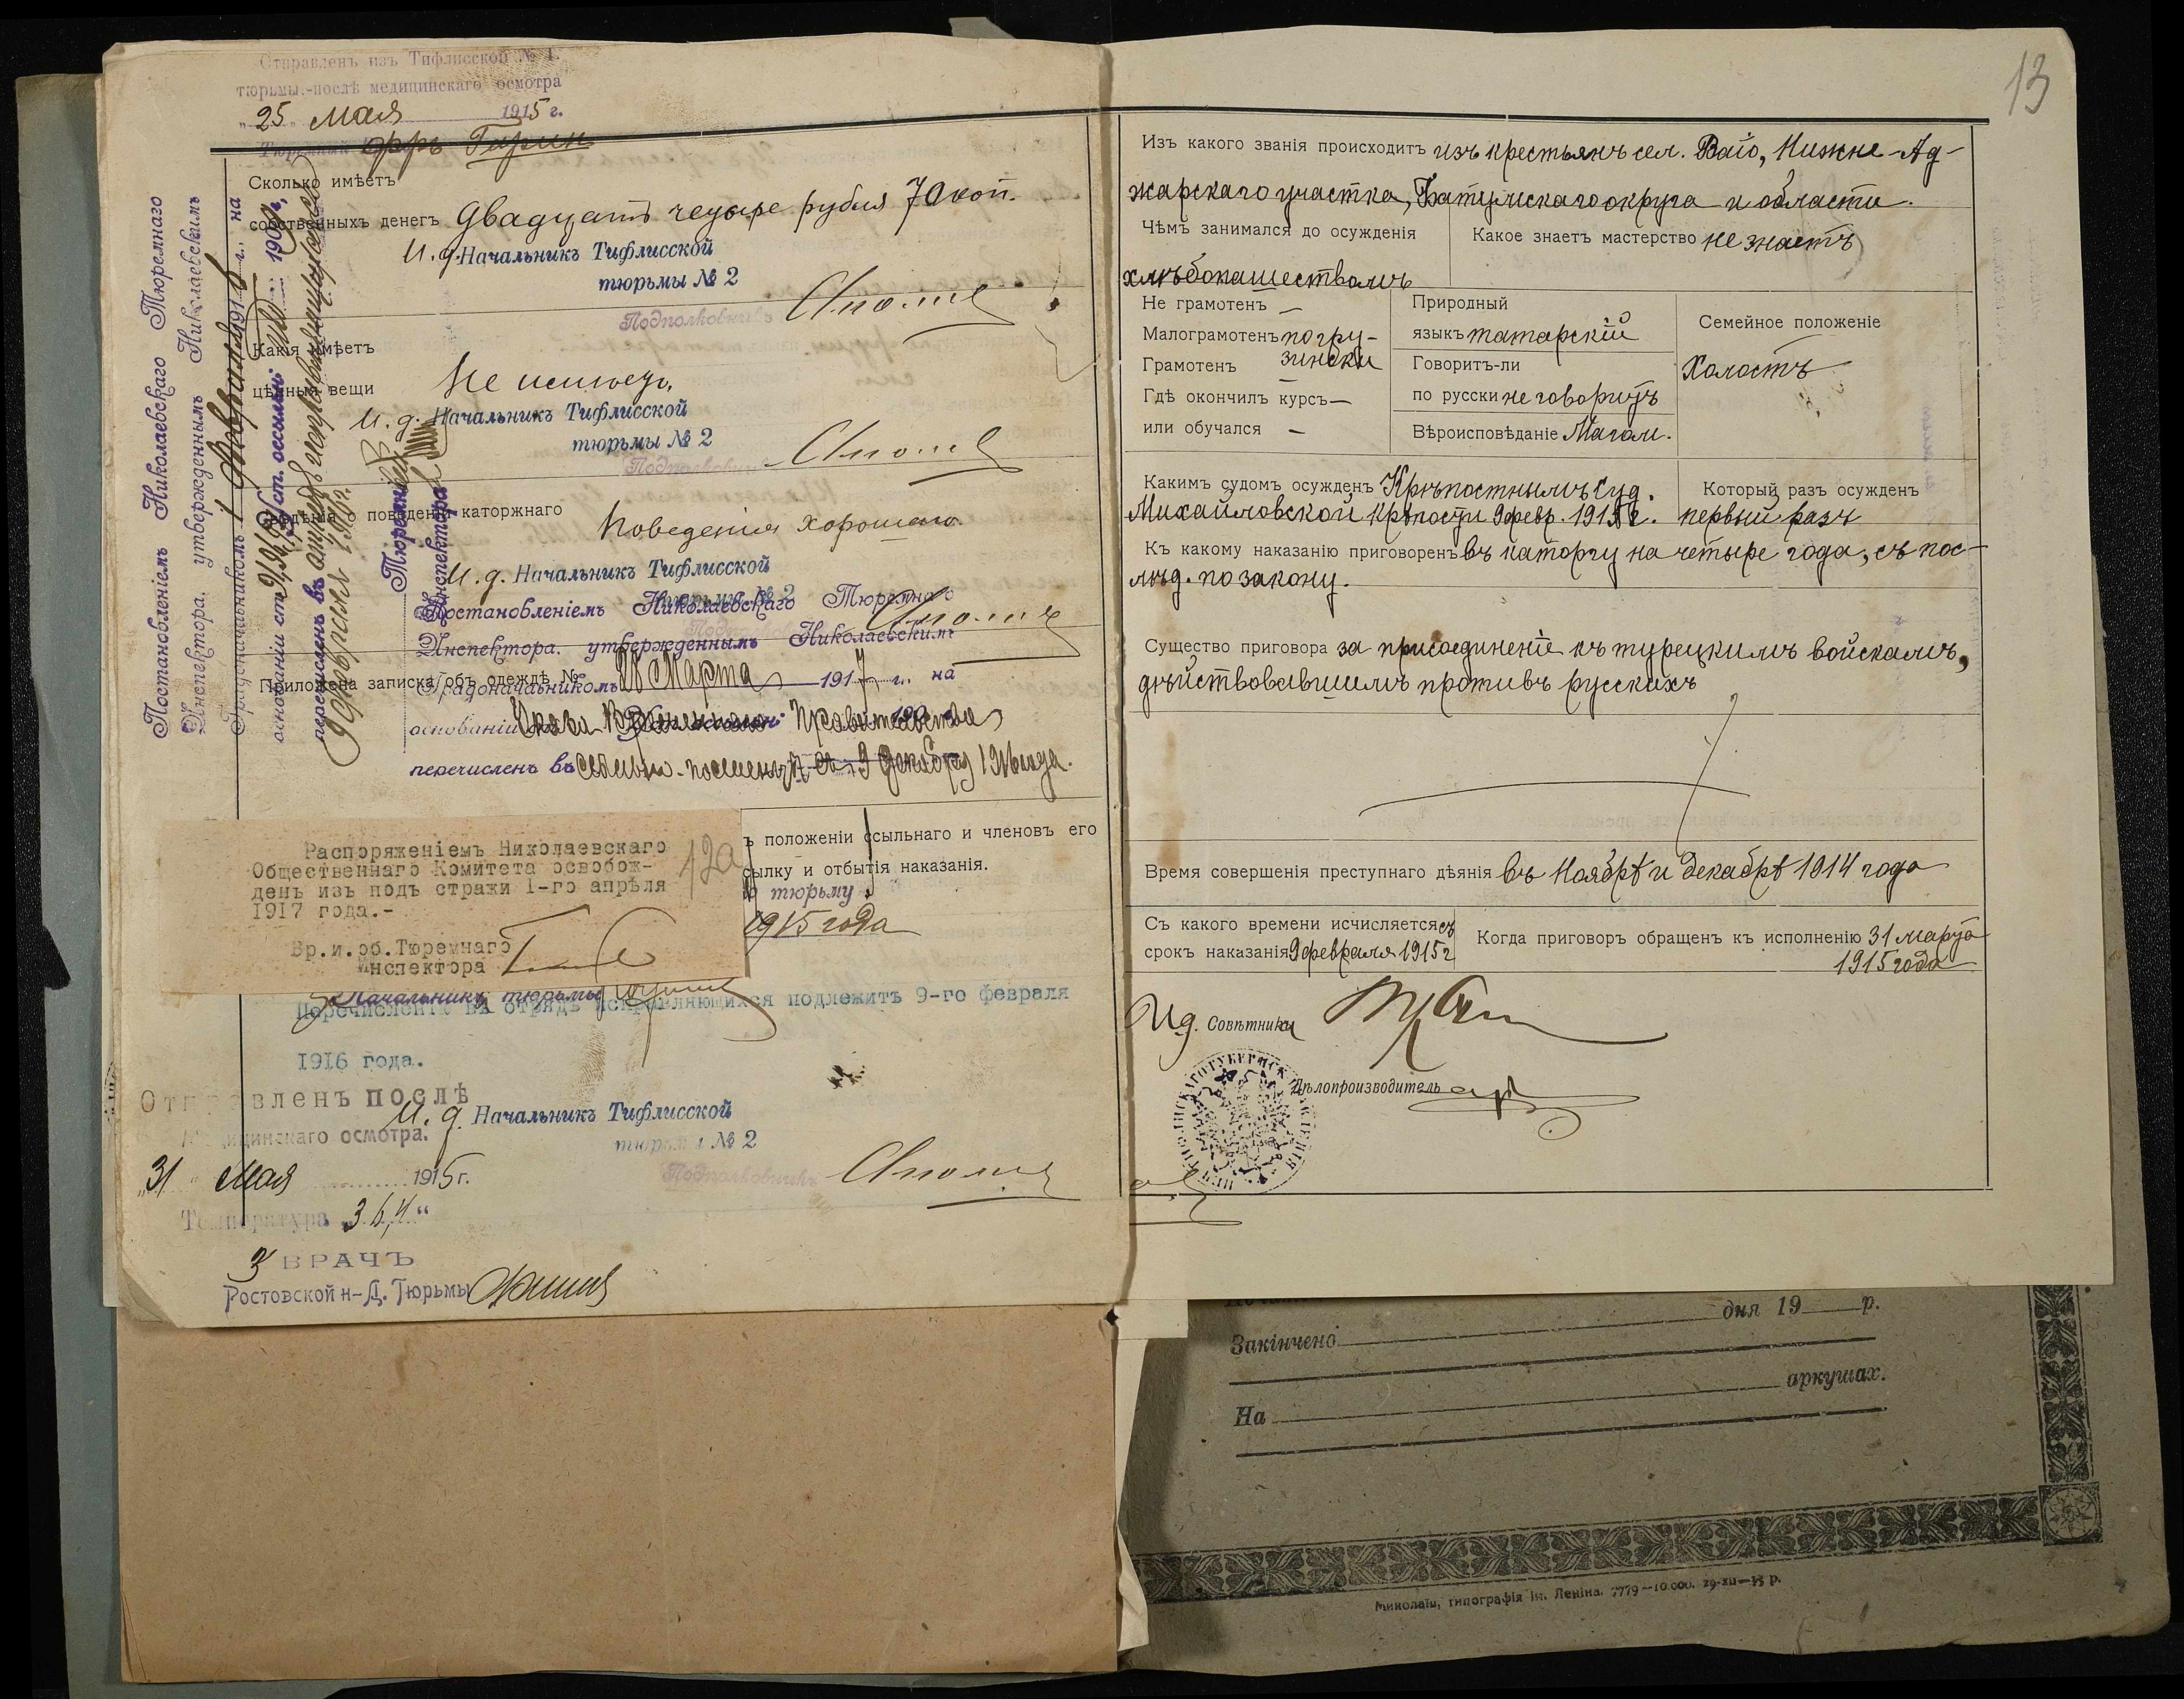 Отправленъ изъ Тифлисской № 1.
тюрьмы.-послѣ медицинскаго осмотра
„25„ мая 1915 г.
Тюремный
Сколько имѣетъ
собственныхъ денегъ двадцать четыре рубля 70 коп.
И. д. Начальникъ Тифлисской
тюрьмы № 2
Подполковникъ
Какія имѣетъ
цѣнныя вещи Не имѣетъ.
И. д. Начальникъ Тифлисской
тюрьмы № 2
Подполковникъ
Свѣдѣнія о поведеніи каторжнаго Поведенія хорошаго.
И. д. Начальникъ Тифлисской
тюрьмы № 2
Постановленіемъ Николаевскаго Тюремнаго
Инспектора, утвержденнымъ Николаевскимъ
Приложена записка объ одеждѣ №
Градоначальникомъ 28 Марта 1917 г. на
основаніи Правительства
перечисленъ въ ссыльно-поселенцы съ 9 декабря 1916 года.
Постановленіемъ Николаевскаго Тюремнаго
Инспектора, утвержденнымъ Николаевскимъ
Градоначальникомъ 1 февраля 1916 г. на
основаніи ст. Уст. о ссыльн. 1909 г.
перечисленъ въ отрядъ исправляющихся
9 февраля 1916 г.
Тюремный
Инспекторъ
Распоряженіемъ Николаевскаго
Общественнаго Комитета освобож-
денъ изъ подъ стражи 1-го апрѣля
1917 года.-
Вр.и.об.Тюремнаго
Инспектора
12а
ъ положеніи ссыльнаго и членовъ его
сылку и отбытія наказанія.
ю тюрьму
1915 года
Начальникъ тюрьмы
Перечисленію въ отрядъ исправляющихся подлежитъ 9-го февраля
1916 года.
Отправленъ послѣ
медицинскаго осмотра.
И. д. Начальникъ Тифлисской
тюрьмы № 2
Подполковникъ
„31„ мая 1915 г.
Температура 36,4“
ВРАЧЪ
Ростовской н-Д. Тюрьмы
13
Изъ какого званія происходитъ изъ крестьянъ сел. Ваіо, Нижне-Ад-
жарскаго участка, Батумскаго округа и области.
Чѣмъ занимался до осужденія
хлѣбопашествомъ
Какое знаетъ мастерство не знаетъ
Не грамотенъ —
Малограмотенъ по гру-
Грамотенъ зински
Гдѣ окончилъ курсъ —
или обучался —
Природный
языкъ татарскій
Говоритъ-ли
по русски не говоритъ
Вѣроисповѣданіе Магом.
Семейное положеніе
Холостъ
Какимъ судомъ осужденъ Крѣпостнымъ Суд.
Михайловской крѣпости 9 февр. 1915 г.
Который разъ осужденъ
первый разъ
Къ какому наказанію приговоренъ въ каторгу на четыре года, съ пос-
лѣд. по закону.
Существо приговора за присоединеніе къ турецкимъ войскамъ,
дѣйствовавшимъ противъ русскихъ
Время совершенія преступнаго дѣянія въ Ноябрѣ и Декабрѣ 1914 года
Съ какого времени исчисляется съ
срокъ наказанія 9 февраля 1915 г
Когда приговоръ обращенъ къ исполненію 31 марта
1915 года
И.д. Совѣтника
Дѣлопроизводитель
дня 19 р.
Закінчено
аркушах.
На
Миколаїв, типографія ім. Леніна. 7779—10.000. 29-XII—33 р.